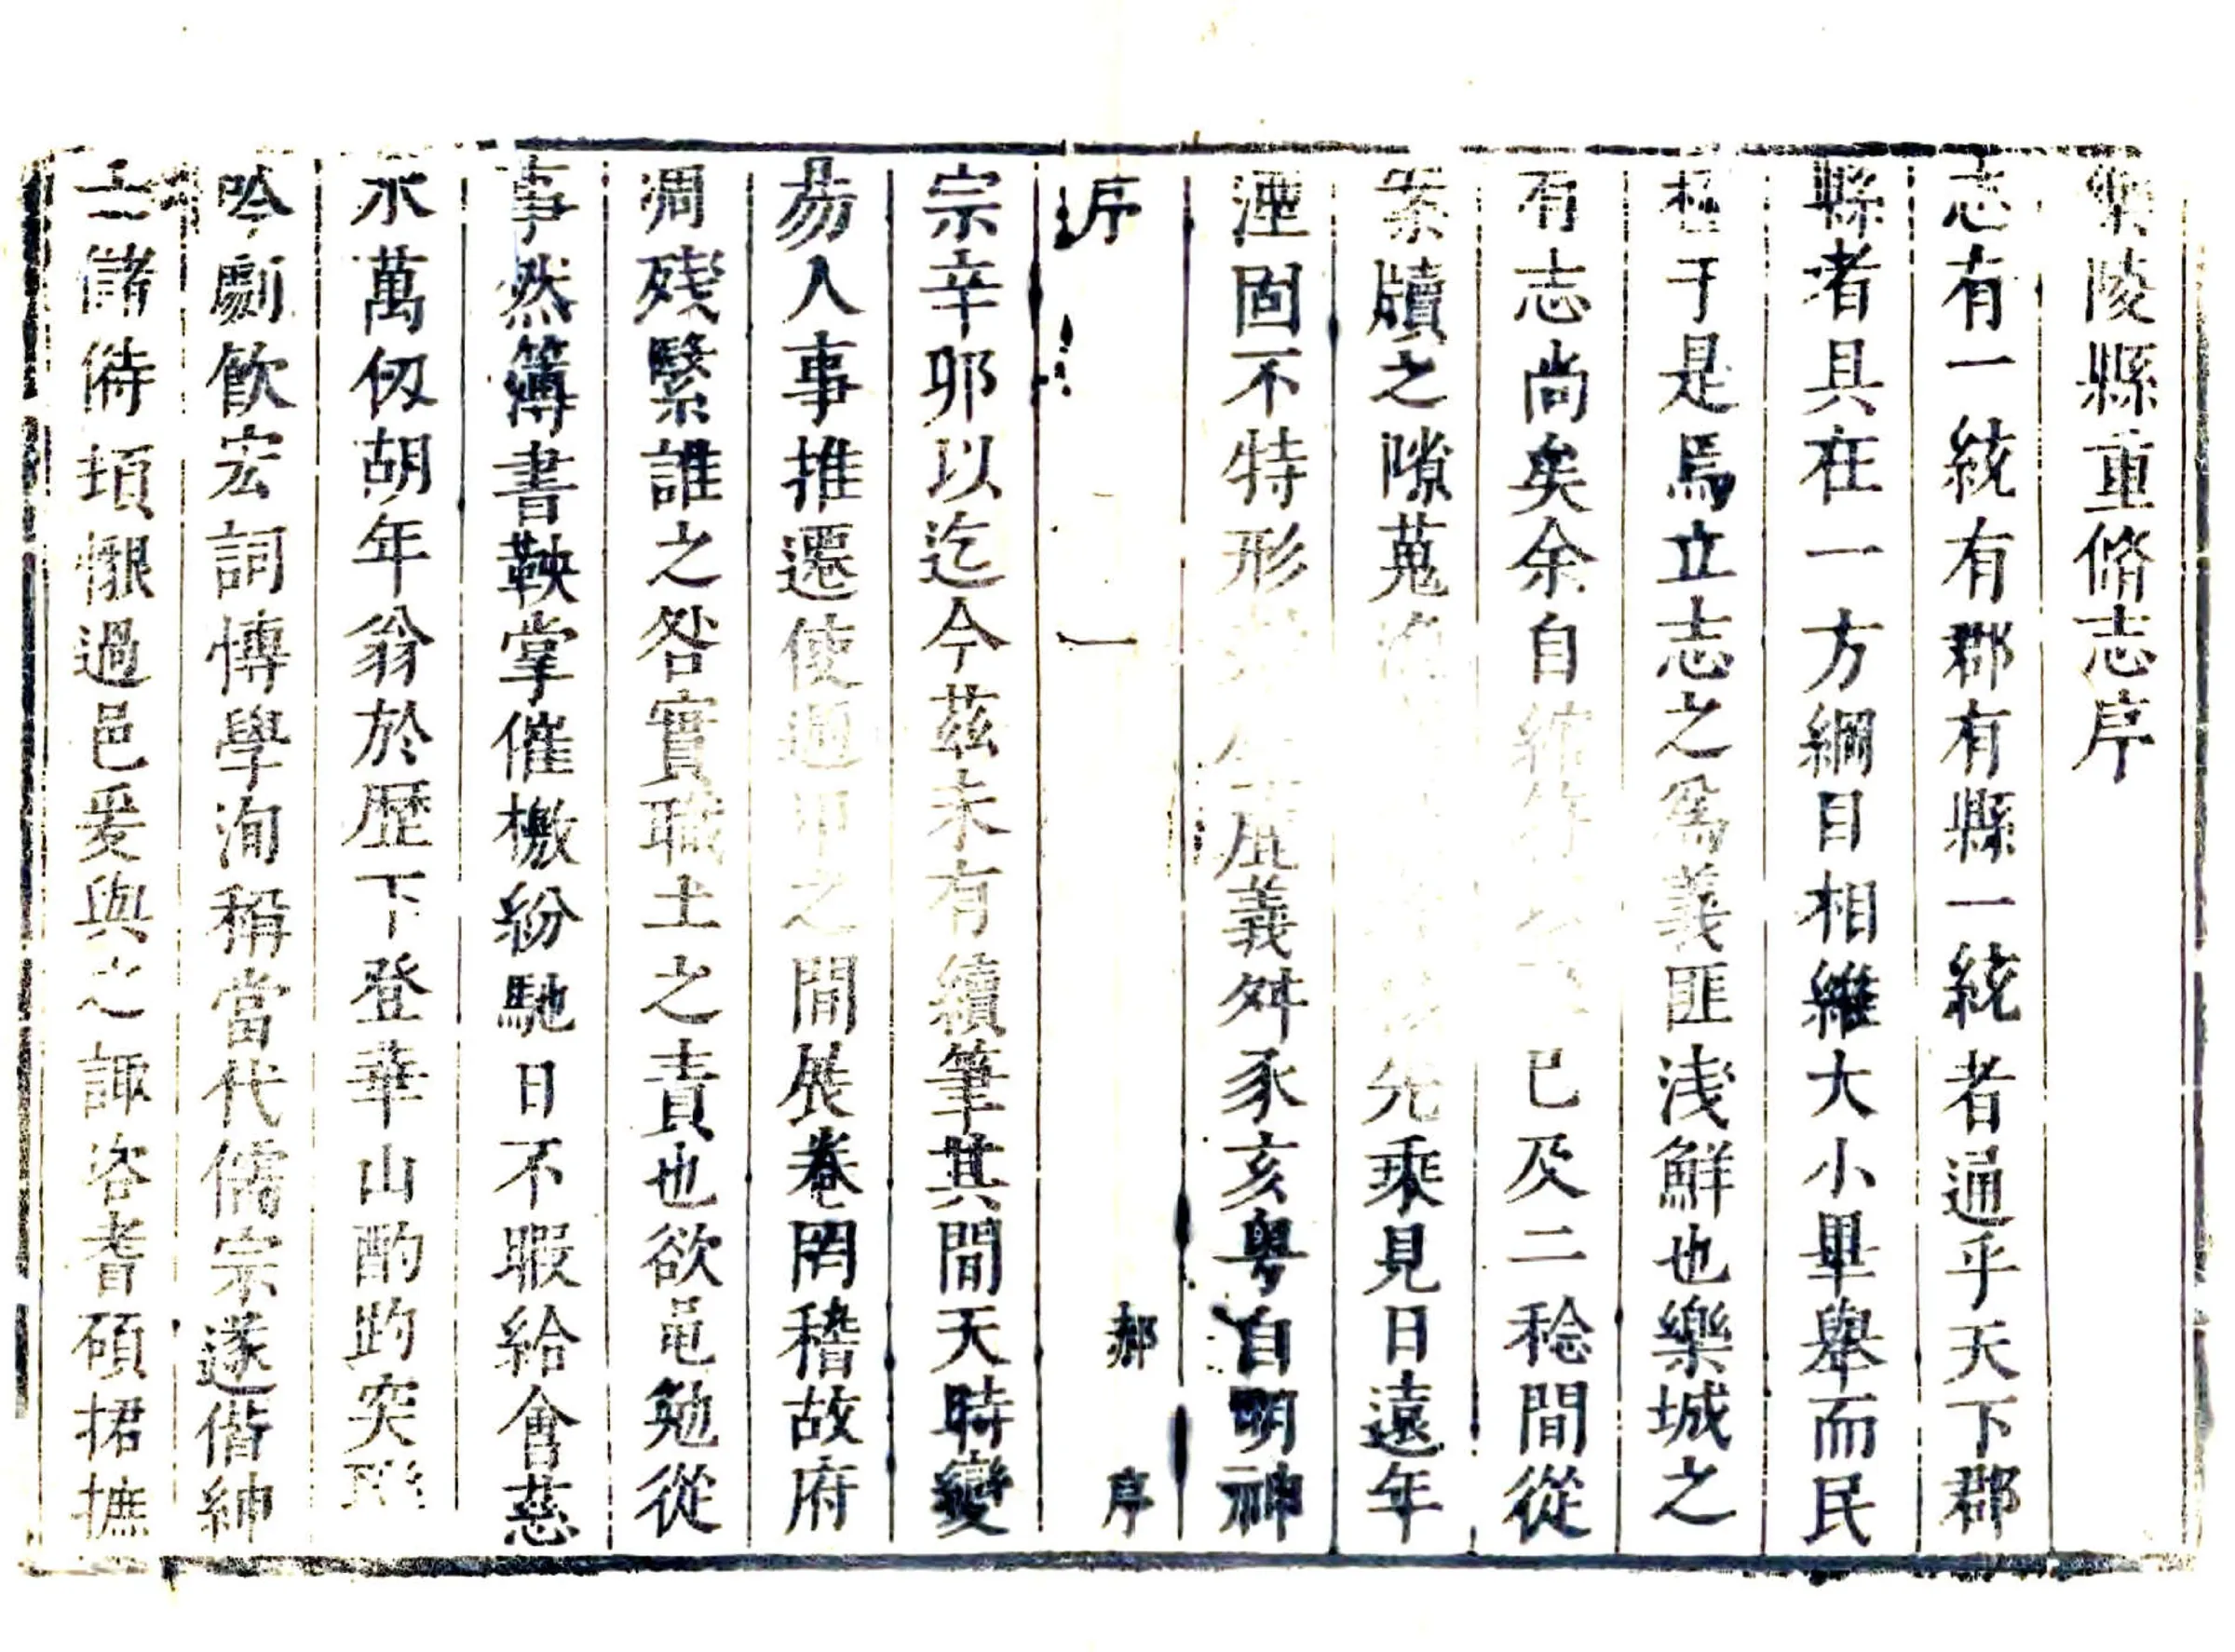 樂陵縣重脩志序
志有一統有郡有縣一統者通乎天下郡
縣者具在一方綱目相維大小畢舉而民
極于是焉立志之為義匪淺鮮也樂城之
有志尚矣余自綰符 已及二稔間從
案牘之隙蒐 先乘見日遠年
湮固不特形 義舛豕亥粵自明神
序 一 郝序
宗幸耶以迄今茲未有續筆其間天時變
昜人事推遷使過 之間展卷罔稽故府
凋殘繄誰之咎實職土之責也欲黽勉從
事然簿書鞅掌催檄紛馳日不暇給會慈
水萬仭胡年翁於歷下登華山酌趵突
吟劇飲宏詞愽學洵稱當代儒宗遂偕紳
士儲偫頓懇過邑爰與之諏咨耆碩捃摭